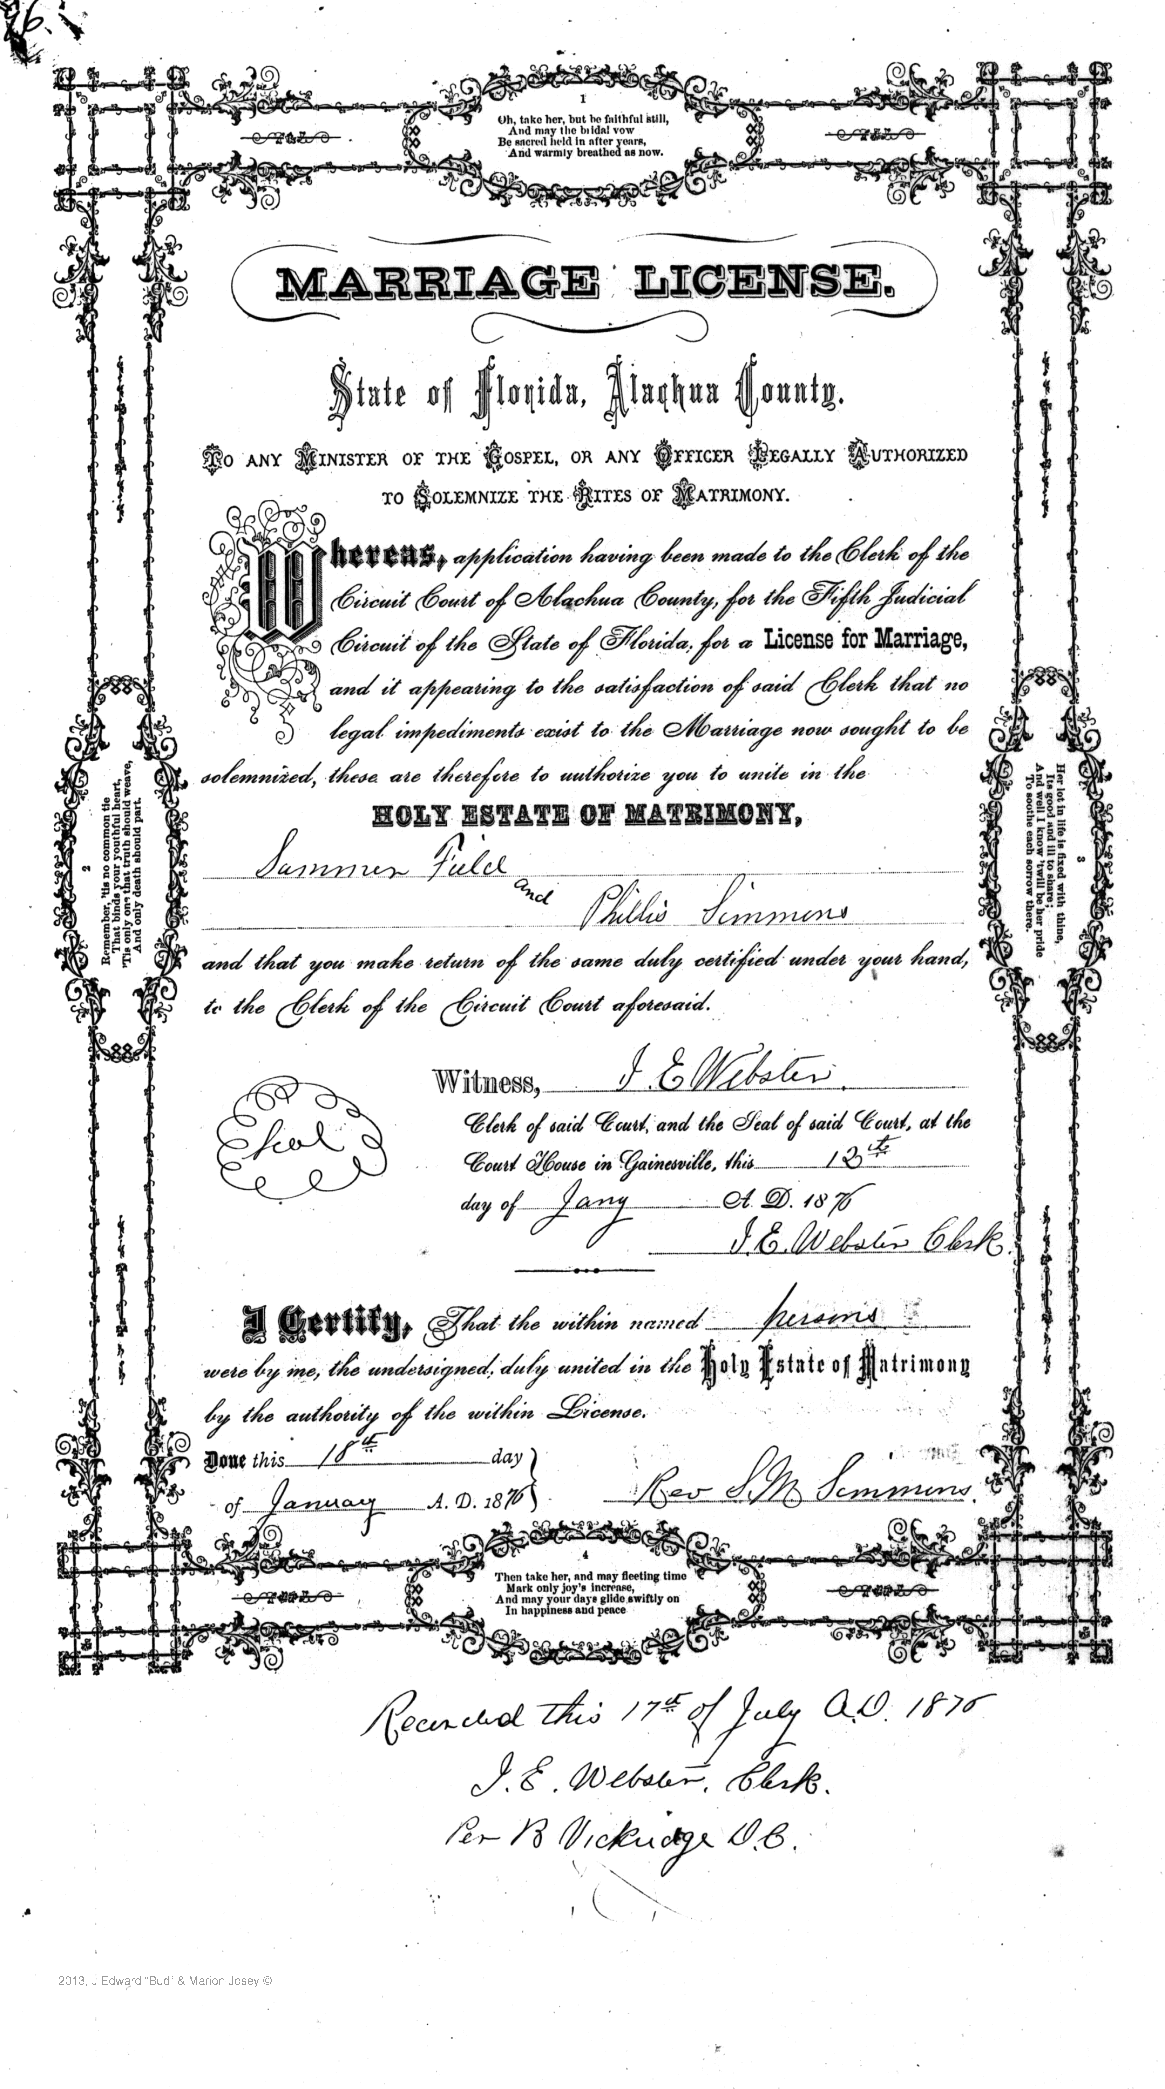 1
Oh, take her, but be faithful still,
And may the bridal vow
Be sacred held in after years,
And warmly breathed as now.
MARRIAGE LICENSE.
State of Florida, Alachua County.
TO ANY MINISTER OF THE GOSPEL, OR ANY OFFICER LEGALLY AUTHORIZED
TO SOLEMNIZE THE RITES OF MATRIMONY.
Whereas, application having been made to the Clerk of the
Circuit Court of Alachua County, for the Fifth Judicial
Circuit of the State of Florida, for a License for Marriage,
and it appearing to the satisfaction of said Clerk that no
legal impediments exist to the Marriage now sought to be
solemnized, these are therefore to authorize you to unite in the
HOLY ESTATE OF MATRIMONY,
Summer Field
and
Phillis Simmons
and that you make return of the same duly certified under your hand,
to the Clerk of the Circuit Court aforesaid.
Witness, J. E. Webster.
Clerk of said Court, and the Seal of said Court, at the
Court House in Gainesville, this 13th
day of Jany A. D. 1876
J. E. Webster Clerk.
Seal
I Certify, That the within named persons
were by me, the undersigned, duly united in the Holy Estate of Matrimony
by the authority of the within License.
Done this 18th day
of January A. D. 1876
Rev S. M. Simmons.
2
Remember, 'tis no common tie
That binds your youthful heart,
'Tis only one that truth should weave,
And only death should part.
3
Her lot in life is fixed with thine,
Its good and ill to share;
And well I know 'twill be her pride
To soothe each sorrow there.
4
Then take her, and may fleeting time
Mark only joy's increase,
And may your days glide swiftly on
In happiness and peace
Recorded this 17th of July A.D. 1876
J. E. Webster, Clerk.
Per B Vickridge D.C.
2013, J Edward "Bud" & Marion Josey ©